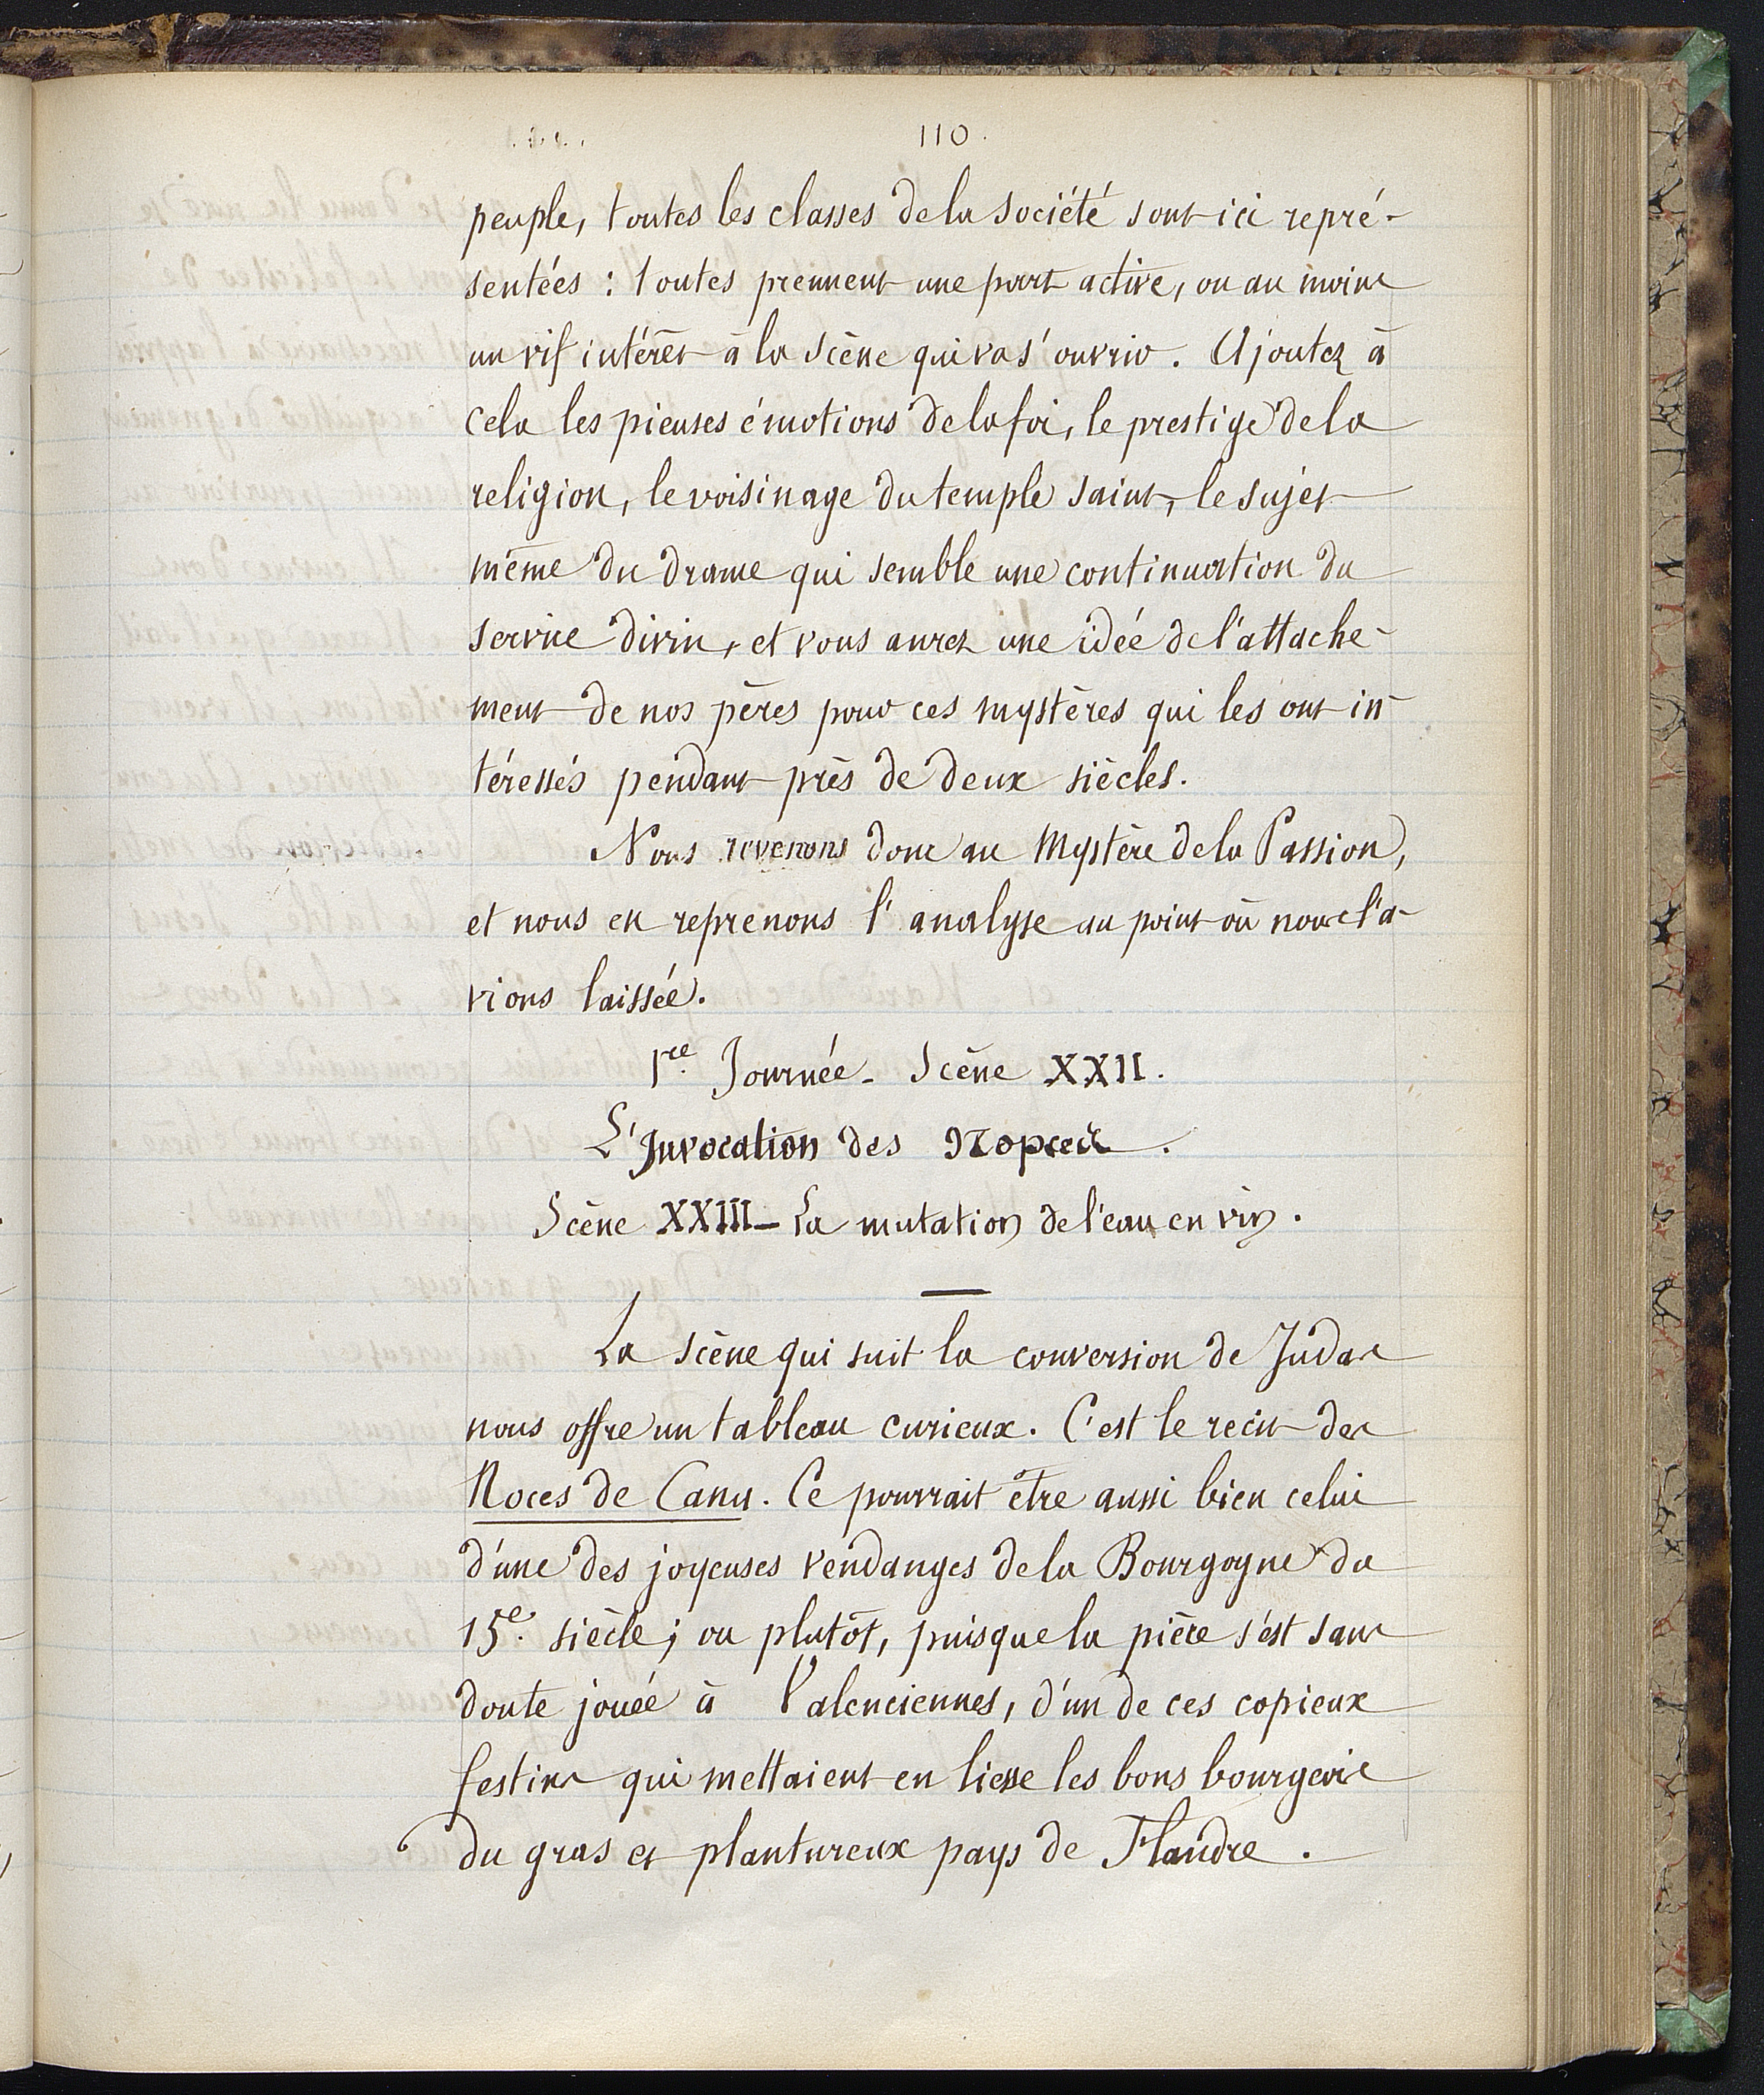 110.
peuple, toutes les classes de la société sont ici repré-
sentées : toutes prennent une part active, ou au moins
un vif intérêt à la scène qui va s'ouvrir. Ajoutez à
cela les pieuses émotions de la foi, le prestige de la
religion, le voisinage du temple saint, le sujet
même du drame qui semble une continuation du
service divin, et vous aurez une idée de l'attache-
ment de nos pères pour ces mystères qui les ont in-
téressés pendant près de deux siècles.
Nous revenons donc au Mystère de la Passion,
et nous en reprenons l'analyse au point où nous l'a-
vions laissée.
1re. Journée - Scène XXII.
L'Invocation des Nopces.
Scène XXIII - La mutation de l'eau en vin.
La scène qui suit la conversion de Judas
nous offre un tableau curieux. C'est le récit des
Noces de Cana. Ce pourrait être aussi bien celui
d'une des joyeuses vendanges de la Bourgogne du
15e. siècle ; ou plutôt, puisque la pièce s'est sans
doute jouée à Valenciennes, d'un de ces copieux
festins qui mettaient en liesse les bons bourgeois
du gras et plantureux pays de Flandre.